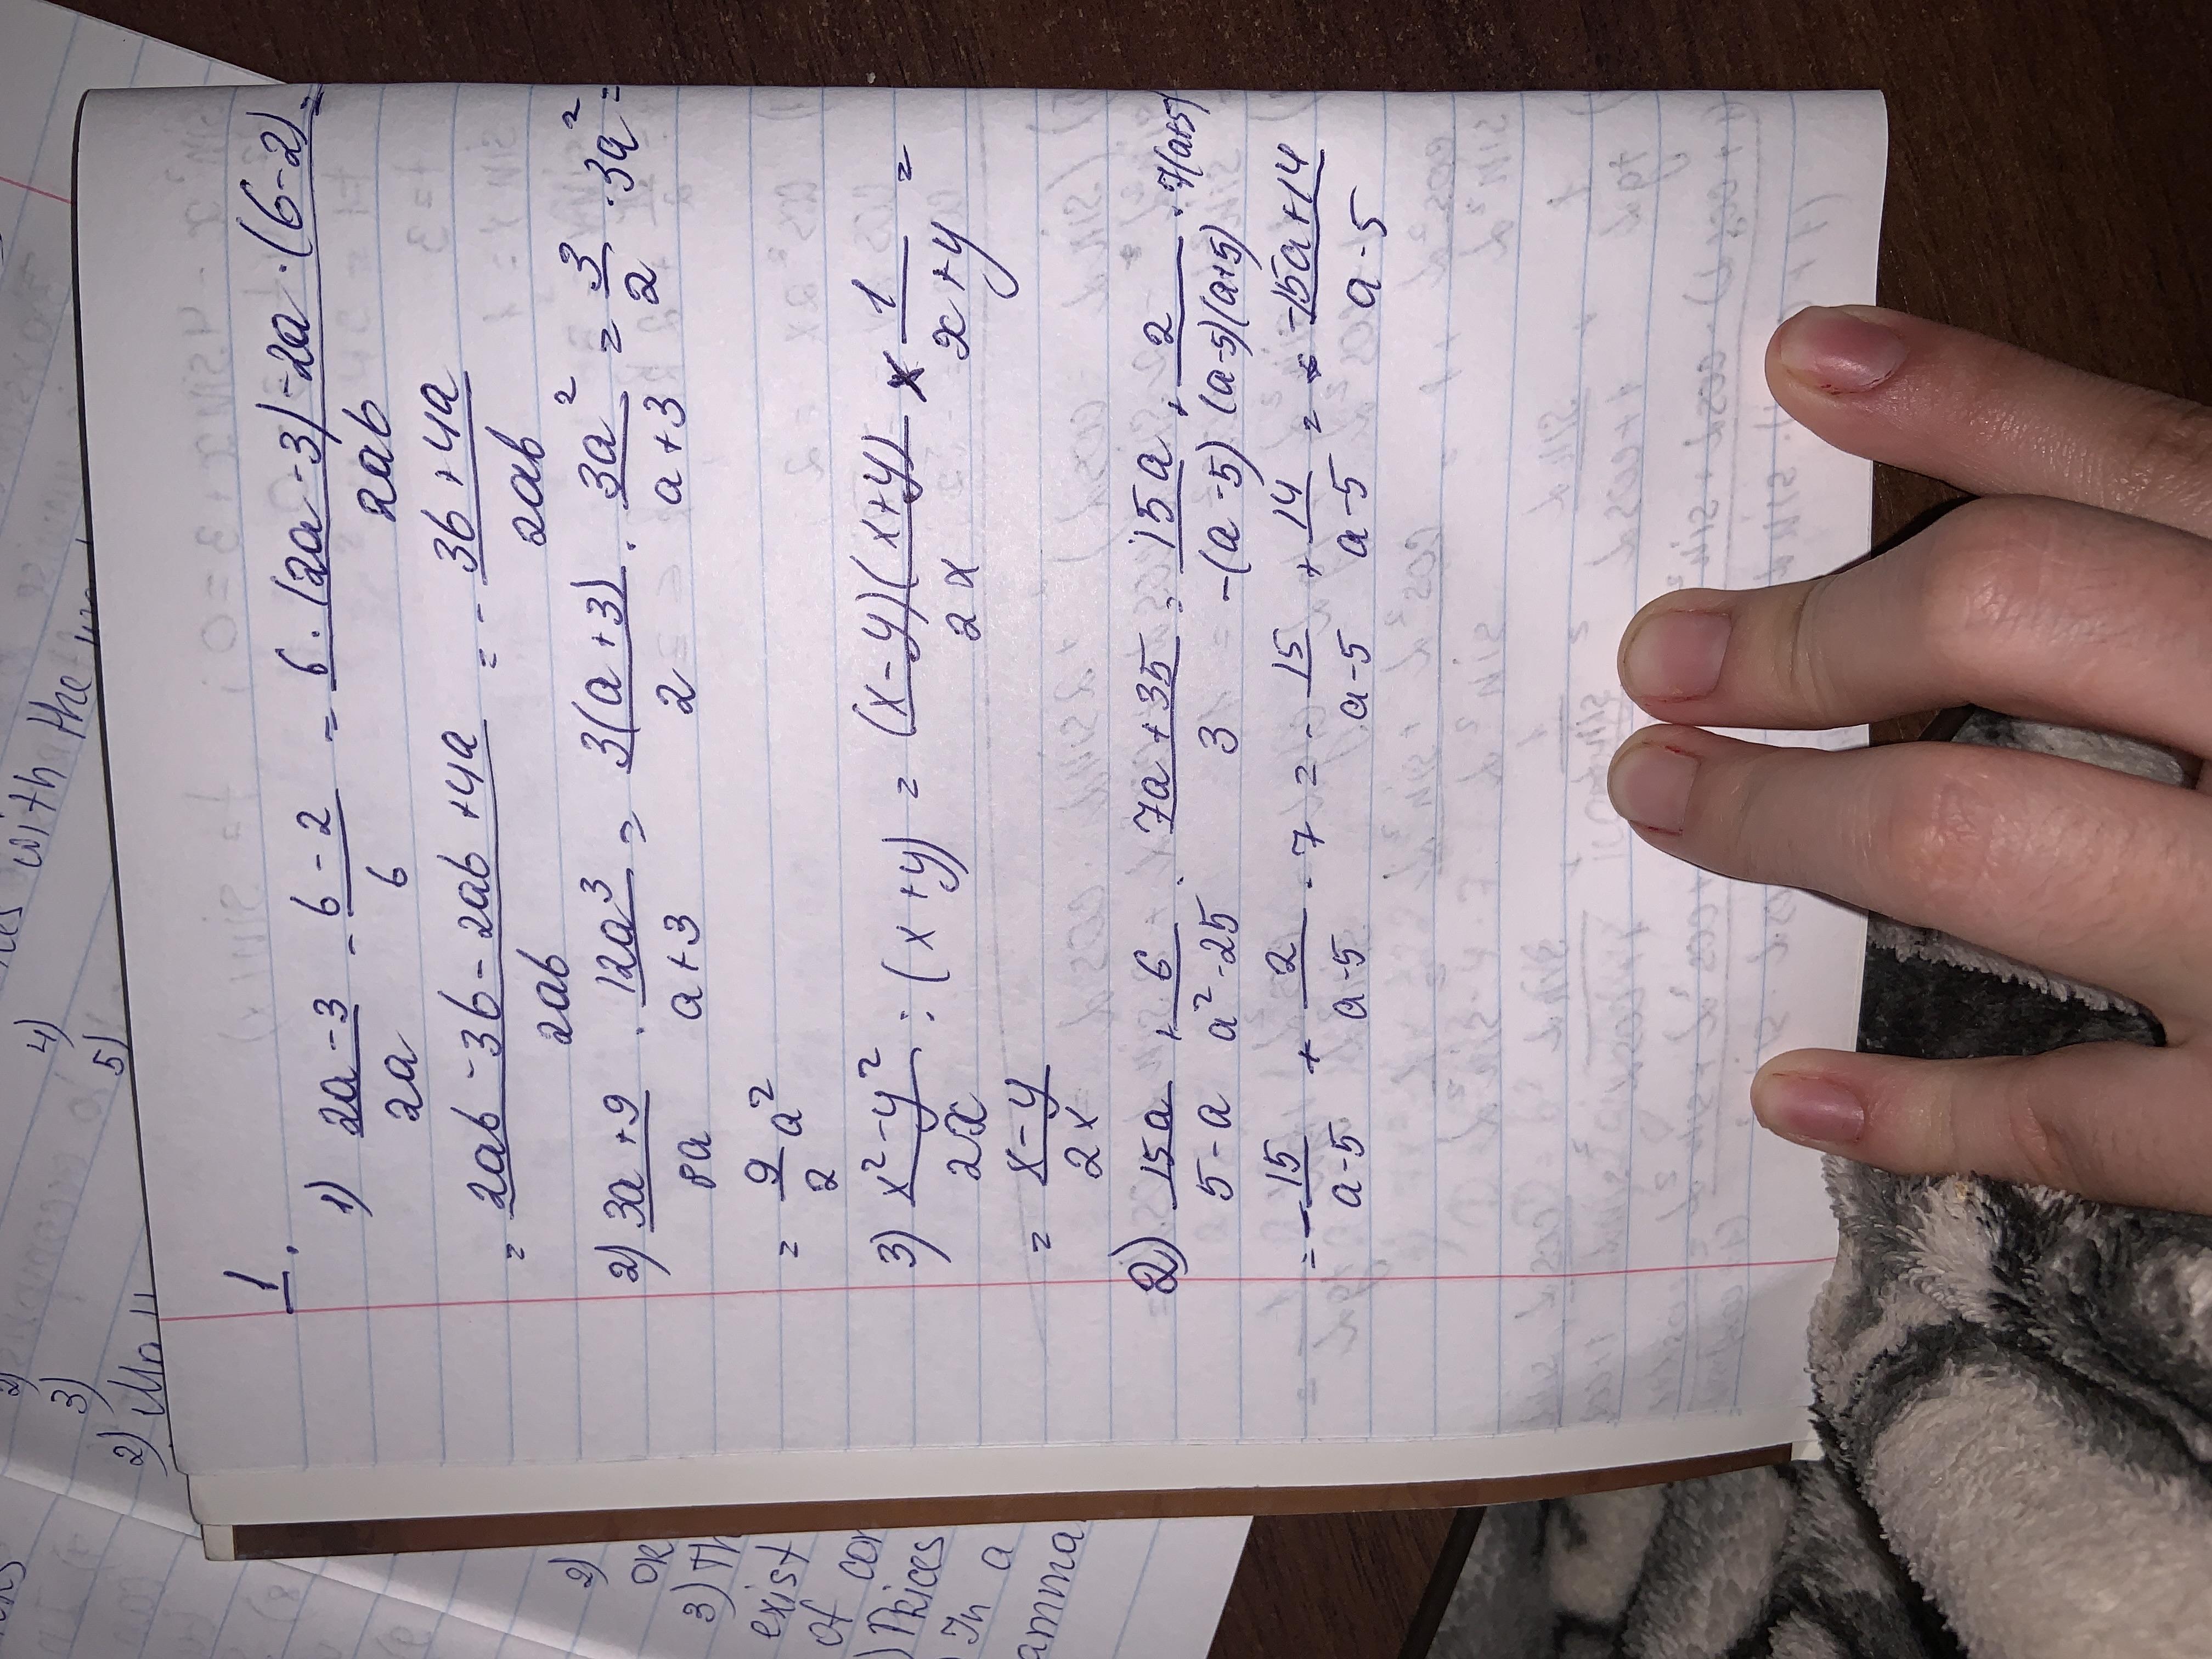 1.
1) 2a-3/2a - b-2/b = b·(2a-3)-2a·(b-2)/2ab =
= 2ab-3b-2ab+4a/2ab = - 3b+4a/2ab
2) 3a+9/8a · 12a³/a+3 = 3(a+3)/2 · 3a²/a+3 = 3/2 · 3a² =
= 9/2 a²
3) x²-y²/2x : (x+y) = (x-y)(x+y)/2x × 1/x+y =
= x-y/2x
2) 15a/5-a + 6/a²-25 · 7a+35/3 = 15a/-(a-5) + 2/(a-5)(a+5) · 7(a+5)
= - 15/a-5 + 2/a-5 · 7 = - 15/a-5 + 14/a-5 = -15a+14/a-5
4)
5)
with the
3)
2)
2)
OR
3) Th
exist
of cor
) Prices
In a
amma